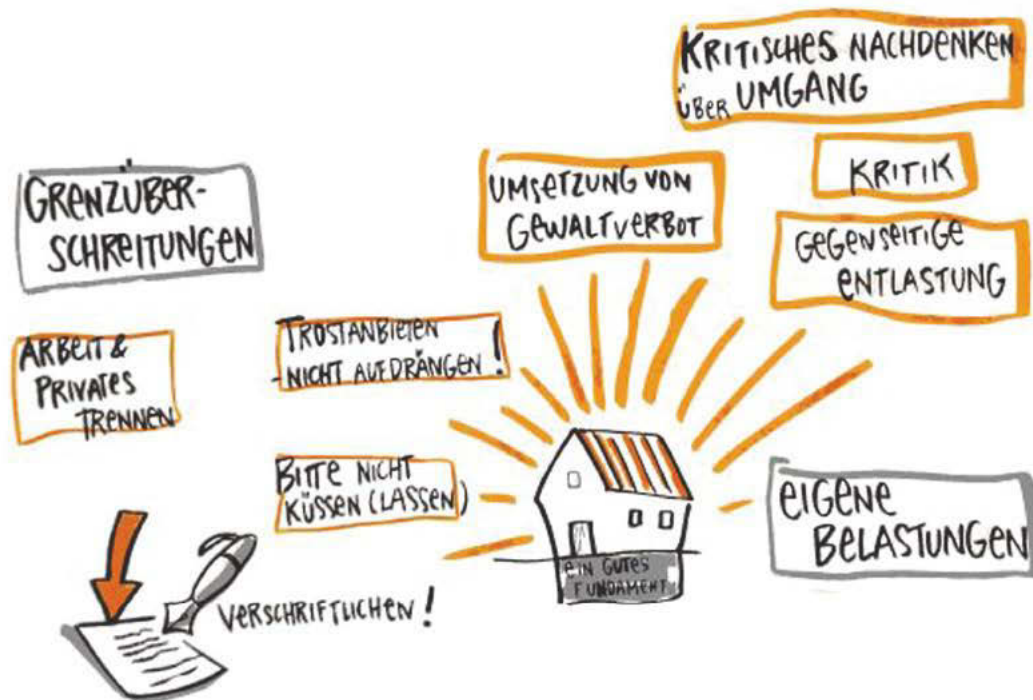 KRITISCHES NACHDENKEN
ÜBER UMGANG
KRITIK
GEGENSEITIGE
ENTLASTUNG
UMSETZUNG VON
GEWALTVERBOT
GRENZÜBER-
SCHREITUNGEN
ARBEIT &
PRIVATES
TRENNEN
TROSTANBIETEN
-NICHT AUFDRÄNGEN!
BITTE NICHT
KÜSSEN (LASSEN)
EIGENE
BELASTUNGEN
EIN GUTES
FUNDAMENT
VERSCHRIFTLICHEN!